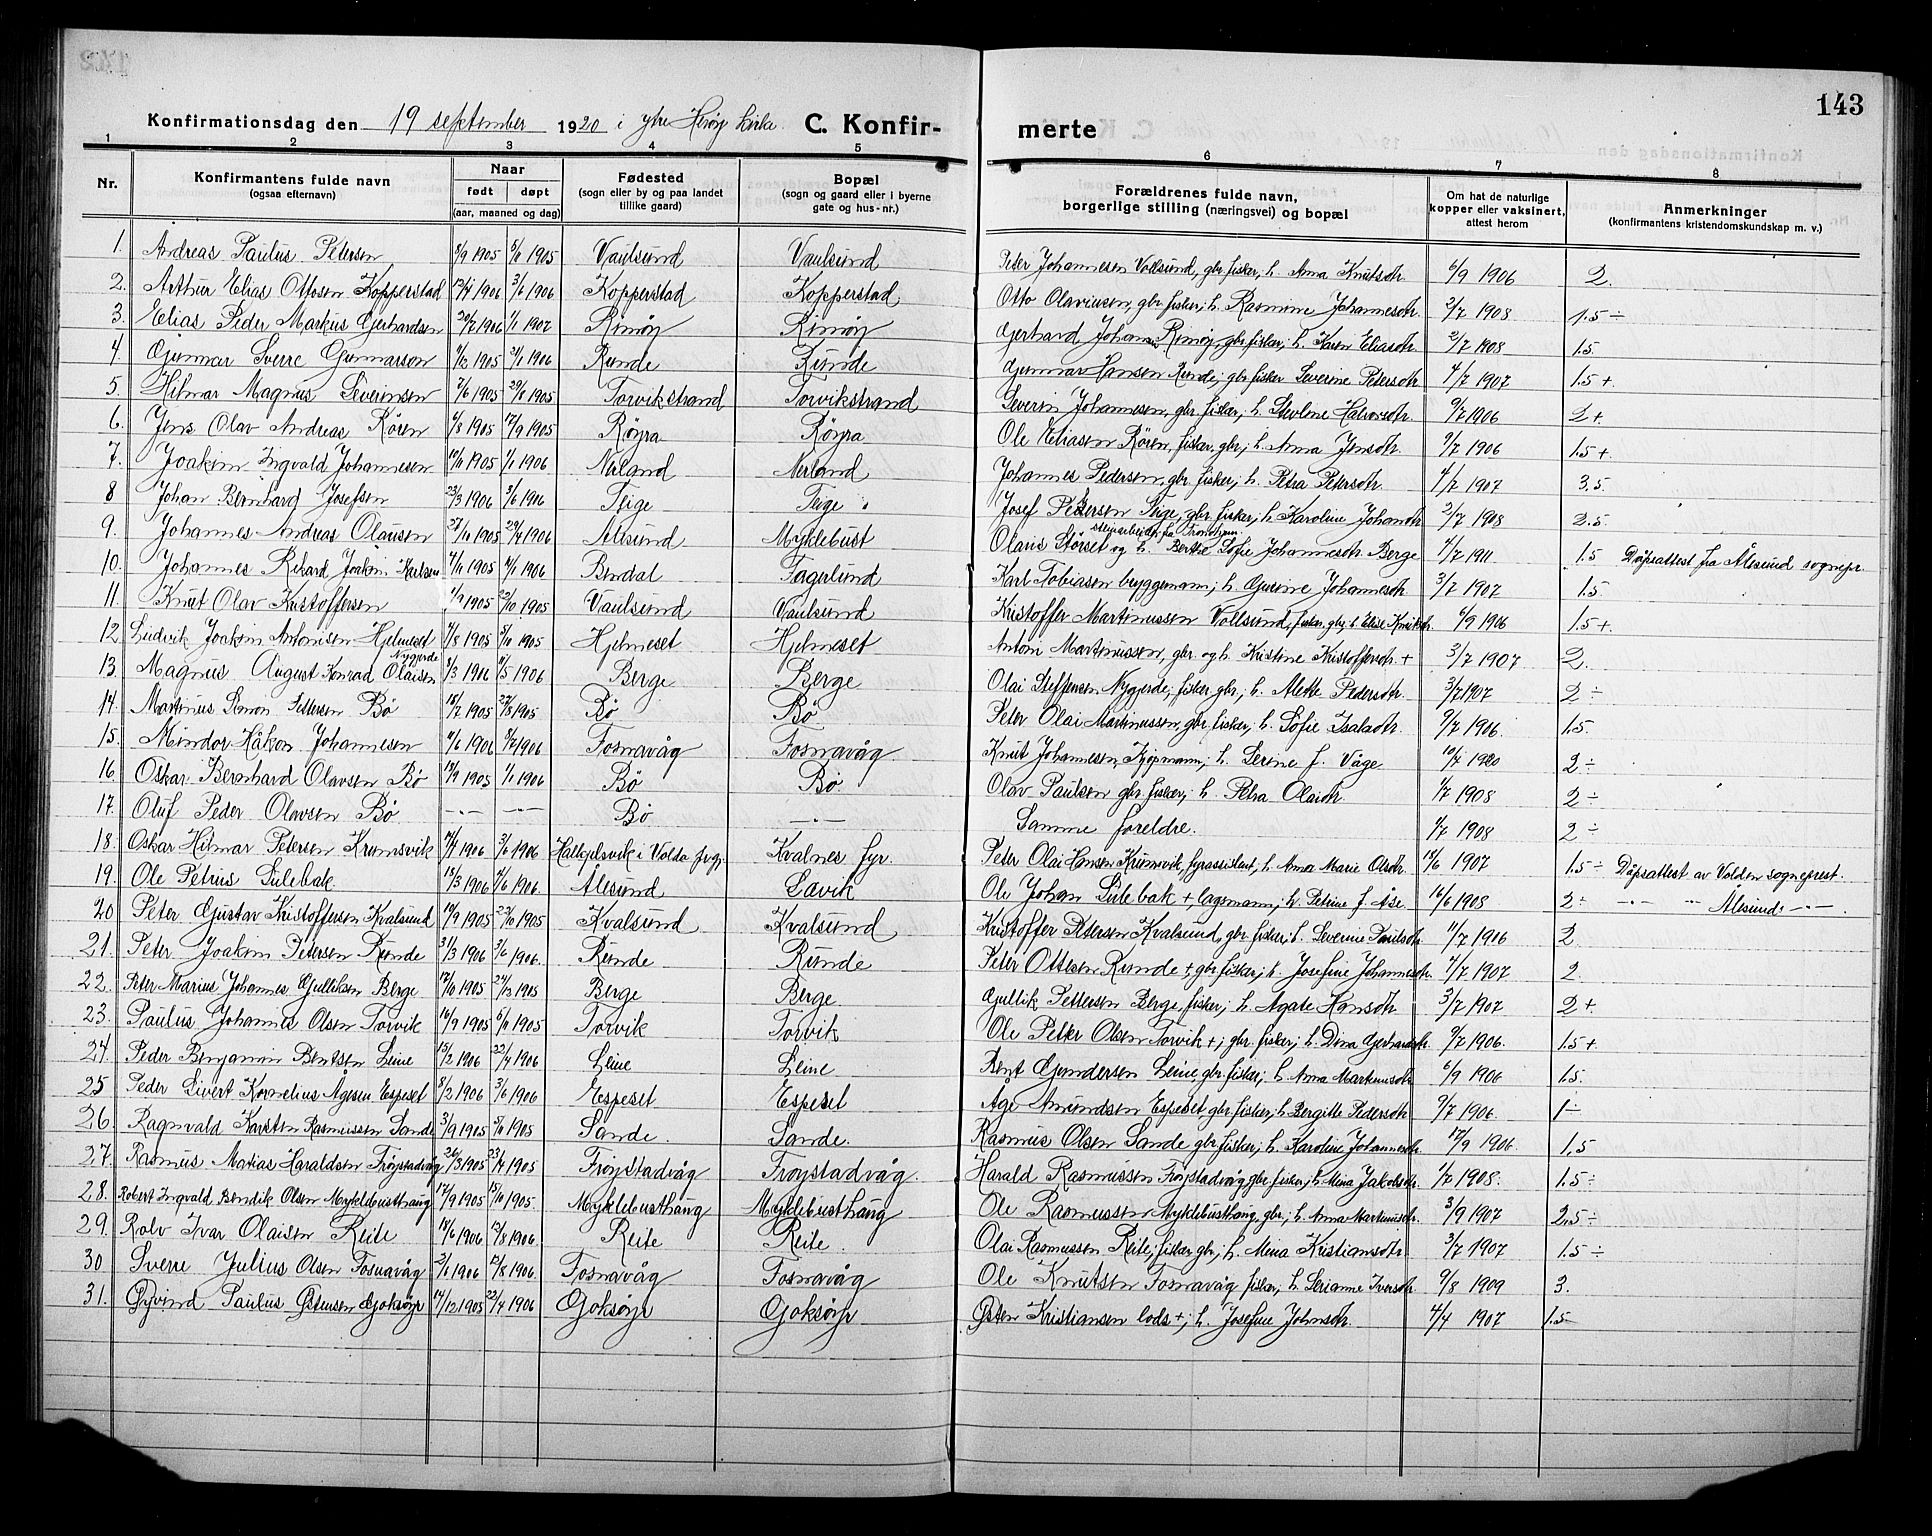 143
Konfirmationsdag den 19 september 1920 i ytre Herøy kirke. C. Konfirmerte
1 2 3 4 5 6 7 8
Nr. Konfirmantens fulde navn (ogsaa efternavn) Naar født døpt (aar, maaned og dag) Fødested (sogn eller by og paa landet tillike gaard) Bopæl (sogn og gaard eller i byerne gate og hus-nr.) Forældrenes fulde navn, borgerlige stilling (næringsvei) og bopæl Om hat de naturlige kopper eller vaksinert, attest herom Anmerkninger (konfirmantens kristendomskundskap m. v.)
1. Andreas Paulus Petersen 8/9 1905 5/11 1905 Vaulsund Vaulsund Peter Johannesen Vollsund, gbr fisker, h. Anna Knutsdtr. 6/9 1906 2.
2. Arthur Elias Ottosen Kopperstad 1906 3/6 1906 Kopperstad Kopperstad Otto Olariusen, gbr. fisker; h. Rasmine Johannesdtr. 2/7 1908 1.5 ÷
3. Elias Peder Markus Gerhardsen 1906 1/1 1907 Rimøy Rimøy Gerhard Johans. Rimøy, gbr fisker; h. Karen Eliasdtr. 2/7 1908 1.5.
4. Gunnar Sverre Gunnarson 1905 21/1 1906 Runde Runde Gunnar Hansen Runde; gbr fisker Severine Petersdtr. 4/7 1907 1.5 +.
5. Hilmar Magnus Severinsen 7/6 1905 1905 Torvikstrand Torvikstrand Severin Johannesen, gbr. fisker, h. Halvorsdtr. 9/7 1906 2+
6. Jens Olav Andreas Røren 6/8 1905 17/9 1905 Røyra Røyra Ole Eliasen Røren, fisker, gbr, h. Anna Jensdtr. 9/7 1906 1.5 +.
7. Joakim Ingvald Johannesen 1905 1/1 1906 Nerland Nerland Johannes Pedersen, gbr fisker, h. Petra Petersdtr. 4/7 1907 3.5.
8 Johan Bernhard Josefsen 23/3 1906 3/6 1906 Teige Teige Josef Pedersen Teige, gbr fisker, h Karoline Johansdtr 2/7 1908 2.5.
9. Johannes Andreas Olausen 27/11 1905 29/4 1906 Ålesund Myklebust Olaus Størset stenarbeider fra Trondhjem og h. Berthe Sofie Johannesdtr. Berge 7/7 1911 1.5 Dåpsattest fra Ålesund sognepr.
10. Johannes Rikard Joakim Karlsen 1905 1906 Bendal Fagerlund Karl Tobiassen bryggemann, h. Gurine Johannesdtr 3/7 1907 1.5.
11. Knut Olav Kristoffersen 1/9 1905 22/10 1905 Vaulsund Vaulsund Kristoffer Martinussen Vollsund, fisker, gbr, h Elise Knutsdtr. 6/9 1906 1.5 +.
12. Ludvik Joakim Antonisen Hjelmeset 7/8 1905 8/10 1905 Hjelmeset Hjelmeset Anton Martinussen, gbr og h. Kristine Kristoffersdtr + 3/7 1907 2.
13. Magnus August Konrad Olaisen Nygjerde 3/3 1906 1906 Berge Berge Olai Steffensen Nygjerde, fisker gbr; h. Alette Pedersdtr. 3/7 1907 2 ÷
14. Martinus Simon Pettersen Bø 1905 27/8 1905 Bø Bø Peter Olai Martinussen, gbr. fisker, h. Sofie Isaksdtr. 9/7 1906. 1.5.
15. Mindor Håkon Johannesen 1906 8/7 1906 Fosnavåg Fosnavåg Knut Johannesen, Kjøpmann; h. Serine f. Våge. 10/7 1920 2 ÷
16. Oskar Bernhard Olavsen Bø 1905 1/1 1906 Bø Bø Olav Paulsen gbr fisker; h. Petra Olaidtr. 1/7 1908 2 ÷
17. Oluf Peder Olavsen Bø —"— —"— Bø —"— Samme foreldre. 1/7 1908 2 ÷
18. Oskar Hilmar Petersen Krumsvik 1906 3/6 1906 Hallkjelsvik i Volda prgj. Kvalnes fyr. Peter Olai Hansen Krumsvik, fyrassistent, h. Anna Marie Olsdtr 1907 1.5 ÷ Dåpsattest av Volden sogneprest.
19. Ole Petrus Sulebak. 1906 1906. Ålesund Sævik Ole Johan Sulebak +, lagsmann; h Petrine f. Åse 16/6 1908 2 ÷ —"— " Ålesund —"—.
20 Peter Gustav Kristoffersen Kvalsund 1905 22/10 1905 Kvalsund Kvalsund Kristoffer Petersen Kvalsund, gbr fisker, h. Severine Paulsdtr 11/7 1906 2
21. Peter Joakim Petersen Runde 31/3 1906 3/6 1906. Runde Runde Peter Ottesen Runde +, gbr fisker, h. Josefine Johannesdtr. 4/7 1907 2.
22. Peter Marius Johannes Gulliksen Berge 1905 24/12 1905 Berge Berge Gullik Pettersen Berge, fisker; h. Agate Hansdtr. 3/7 1907 2+
23. Paulus Johannes Olsen Torvik 16/9 1905 1905 Torvik Torvik Ole Petter Olsen Torvik +, gbr fisker; h. Dina Gerhardsdtr. 9/7 1906. 1.5 +.
24. Peder Benjamin Bentsen Leine 15/2 1906 22/4 1906 Leine Leine Bent Gundersen Leine, gbr. fisker; h. Anna Martinusdtr. 6/9 1906 1.5.
25 Peder Sivert Kornelius Ågesen Espeset 8/2 1906 3/6 1906 Espeset Espeset Åge Amundsen Espeset, gbr fisker, h Bergitte Pedersdtr 9/7 1906. 1 ÷
26. Ragnvald Karsten Rasmussen Sande 3/9 1905 8/10 1905 Sande. Sande. Rasmus Olsen Sande gbr fisker; h. Karoline Johannesdtr. 17/9 1906. 1,5
27. Rasmus Matias Haraldsen Frøystadvåg 26/3 1905 23/4 1905 Frøystadvåg Frøystadvåg. Harald Rasmussen Frøystadvåg, gbr fisker, h Mina Jakobsdtr. 1/7 1908. 1.5 ÷
28. Robert Ingvald Bendik Olsen Myklebusthaug 17/9 1905 15/10 1905. Myklebusthaug Myklebusthaug Ole Rasmussen Myklebusthaug, gbr; h. Anna Martinusdtr. 3/9 1907 2.5 ÷
29. Rolv Ivar Olaisen Reite 1906 12/8 1906. Reite Reite. Olai Rasmussen Reite; fisker gbr; h. Mina Kristiansdtr. 3/7 1907 1.5 ÷
30 Sverre Julius Olsen Fosnavåg 1906 12/8 1906. Fosnavåg Fosnavåg Ole Knutsen Fosnavåg fisker, h. Serianne Iversdtr. 9/8 1909 3.
31. Øyvind Paulus Østensen Goksøyr 17/12 1905 22/4 1906 Goksøyr Goksøyr Østen Kristiansen lods +; h. Josefine Johnsdtr. 4/4 1907 1.5